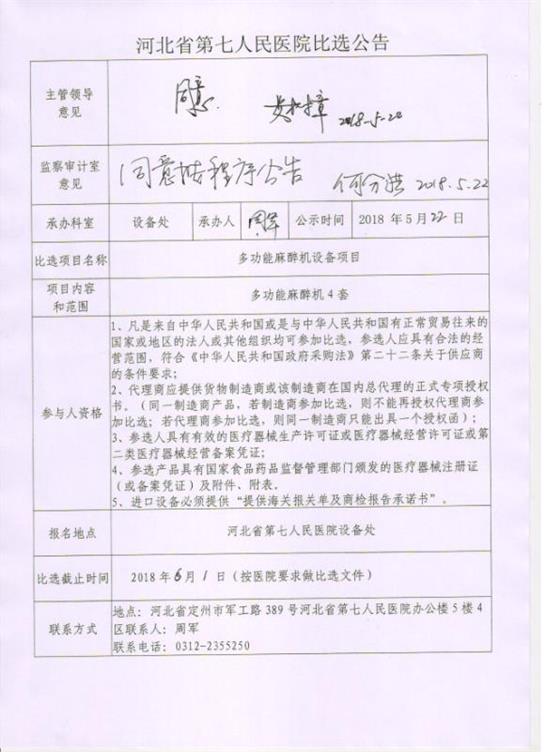 河北省第七人民医院比选公告
主管领导
意见
同意.
2018-5-22
监察审计室
意见
同意按程序公告
2018.5.22
承办科室
设备处
承办人
周军
公示时间
2018 年 5 月 22 日
比选项目名称
多功能麻醉机设备项目
项目内容
和范围
多功能麻醉机 4 套
参与人资格
1、凡是来自中华人民共和国或是与中华人民共和国有正常贸易往来的
国家或地区的法人或其他组织均可参加比选，参选人应具有合法的经
营范围，符合《中华人民共和国政府采购法》第二十二条关于供应商
的条件要求；
2、代理商应提供货物制造商或该制造商在国内总代理的正式专项授权
书。（同一制造商产品、若制造商参加比选，则不能再授权代理商参
加比选；若代理商参加比选，则同一制造商只能出具一个授权函）；
3、参选人具有有效的医疗器械生产许可证或医疗器械经营许可证或第
二类医疗器械经营备案凭证；
4、参选产品具有国家食品药品监督管理部门颁发的医疗器械注册证
（或备案凭证）及附件、附表。
5、进口设备必须提供“提供海关报关单及商检报告承诺书”。
报名地点
河北省第七人民医院设备处
比选截止时间
2018 年 6 月 1 日（按医院要求做比选文件）
联系方式
地点：河北省定州市军工路 389 号河北省第七人民医院办公楼 5 楼 4
区联系人：周军
联系电话：0312-2355250